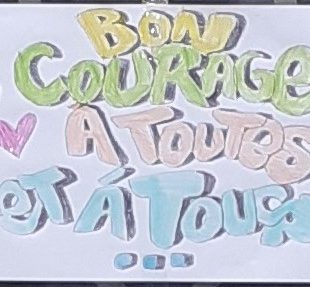 BON
COURAGE
À TOUTES
ET À TOUS
...